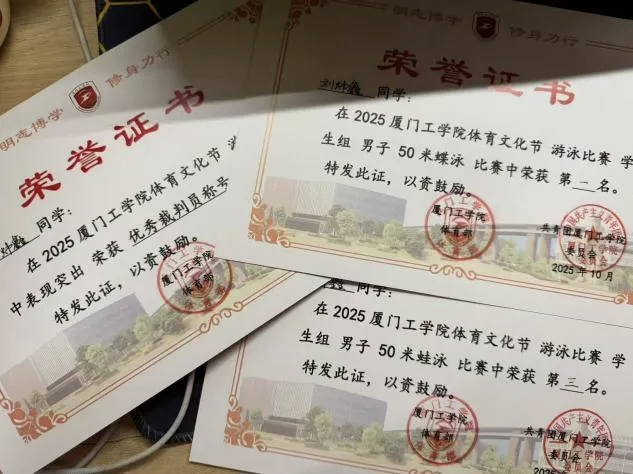 明志博学
修身力行
荣誉证书
同学：
在2025厦门工学院体育文化节
中表现突出 荣获 优秀裁判员称号
特发此证，以资鼓励。
厦门工学院
体育部
明志博学
修身力行
荣誉证书
同学：
在2025厦门工学院体育文化节 游泳比赛 学
生组 男子 50米蝶泳 比赛中荣获 第二名。
特发此证，以资鼓励。
厦门工学院
体育部
共青团厦门工学院
委员会
2025年10月
同学：
在2025厦门工学院体育文化节 游泳比赛 学
生组 男子 50米蛙泳 比赛中荣获 第三名。
特发此证，以资鼓励。
厦门工学院
体育部
共青团厦门工学院
委员会